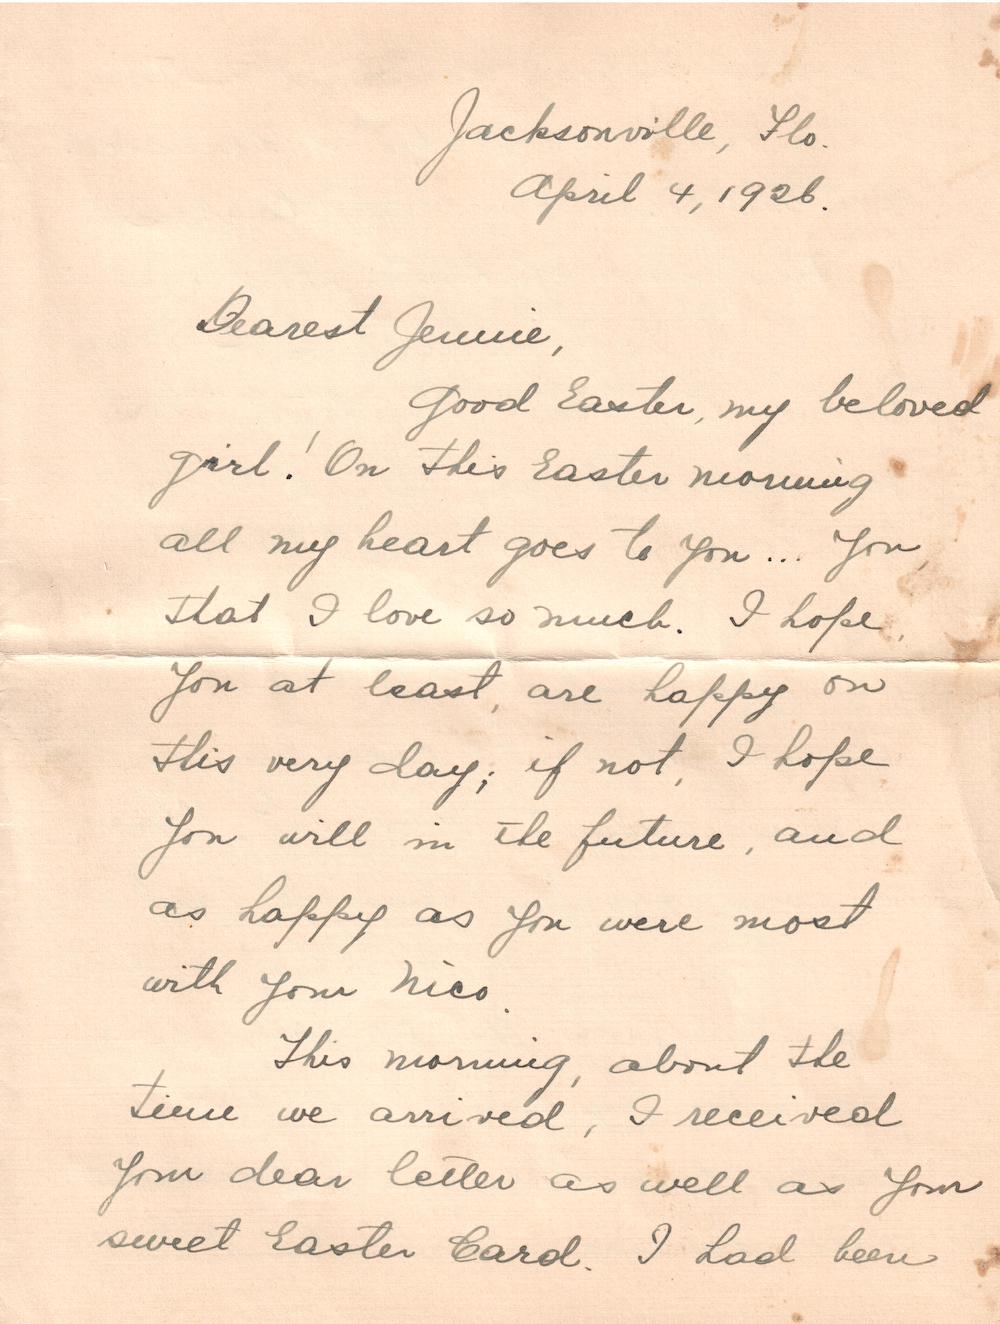 Jacksonville, Flo.
April 4, 1926.
Dearest Jennie,
Good Easter, my beloved
girl! On this Easter morning
all my heart goes to you... You,
that I love so much. I hope,
you at least, are happy on
this very day; if not, I hope
you will in the future, and
as happy as you were most
with your Nico.
This morning, about the
time we arrived, I received
your dear letter as well as your
sweet Easter Card. I had been